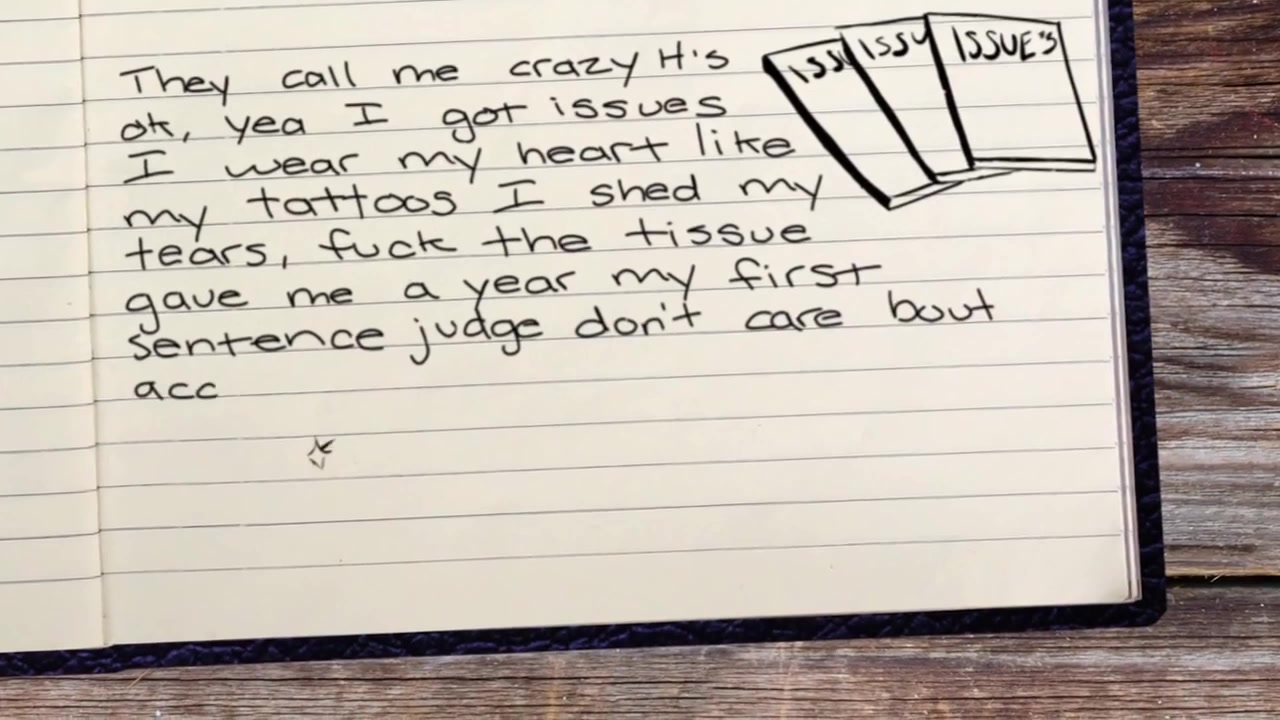 They call me crazy it's
ok, yea I got issues
I wear my heart like
my tattoos I shed my
tears, fuck the tissue
gave me a year my first
sentence judge don't care bout
acc
ISSU
ISSU
ISSUE'S